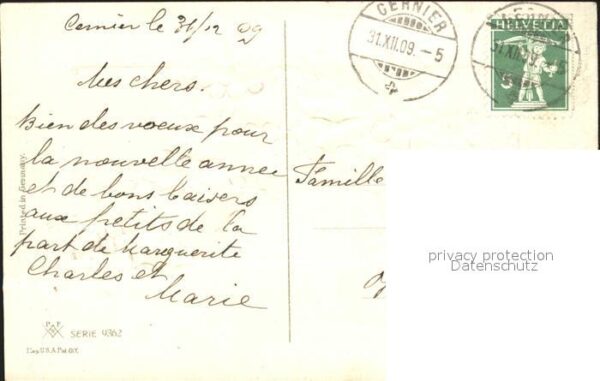 Cernier le 31/12 09
Mes chers.
Bien des voeux pour
la nouvelle année
et de bons baisers
aux petits de la
part de Marguerite
Charles et
Marie
CERNIER
31.XII.09.-5
HELVETIA
5
31.XII.09.-5
Famille
privacy protection
Datenschutz
Printed in Germany.
P F
SERIE 9362
Cop. U.S.A. Pat. Off.